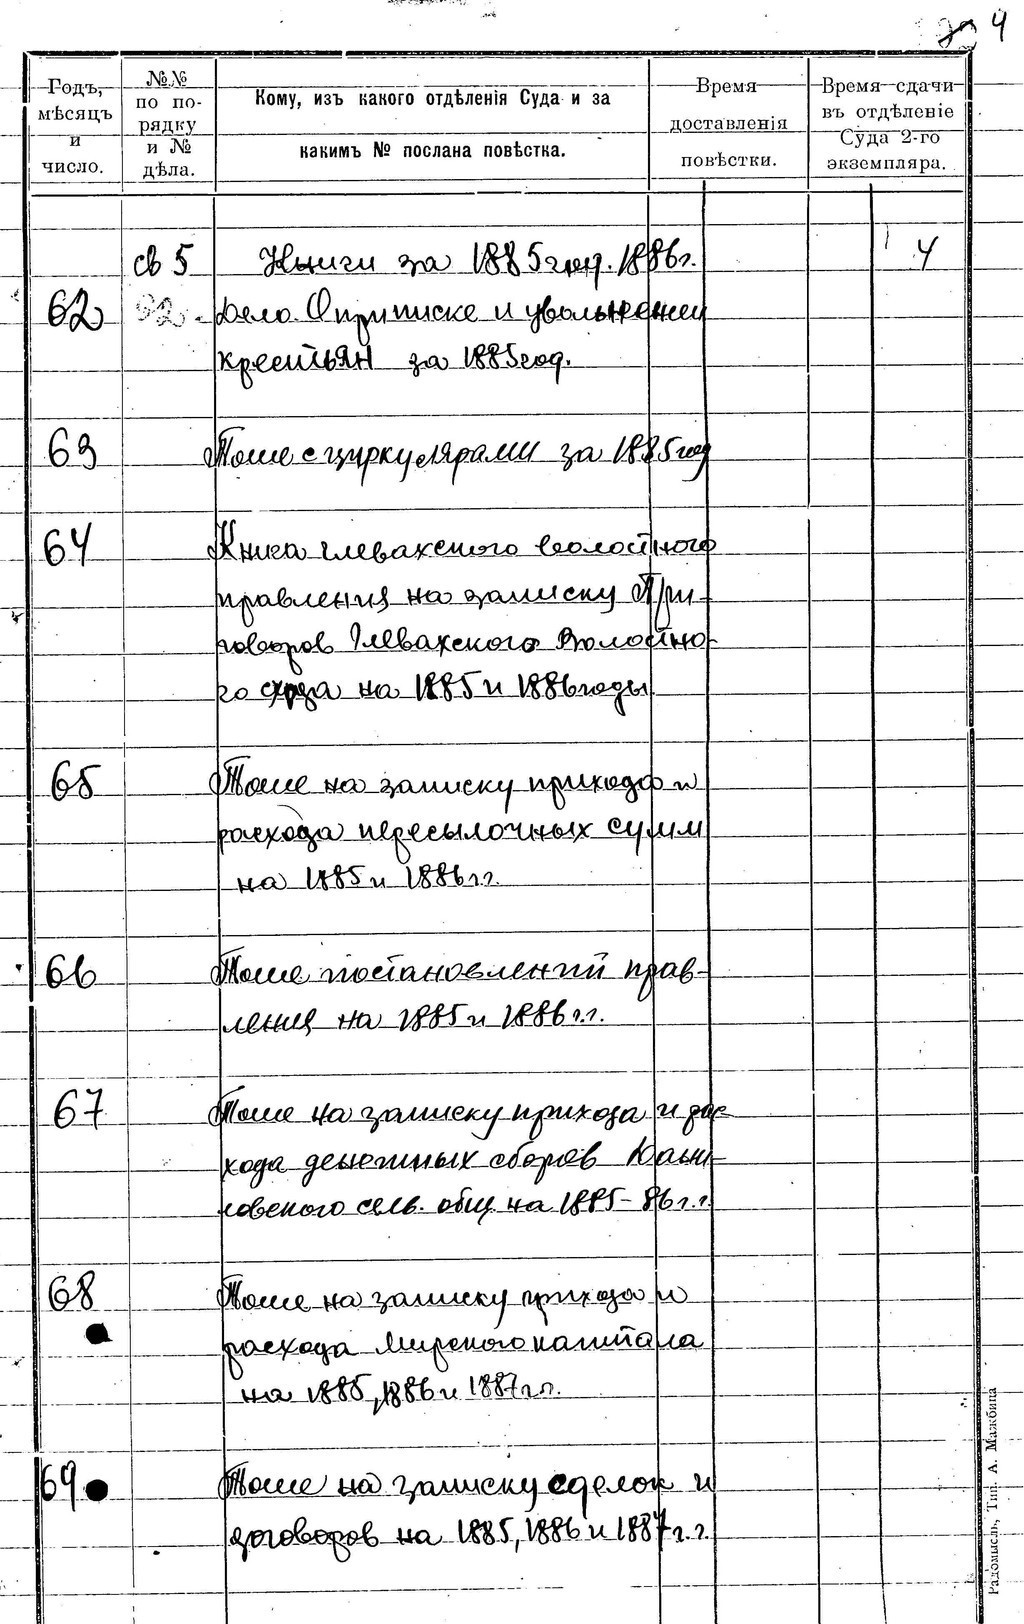 4
Годъ,
мѣсяцъ
и
число.
№№
по по-
рядку
и №
дѣла.
Кому, изъ какого отдѣленія Суда и за
какимъ № послана повѣстка.
Время
доставленія
повѣстки.
Время сдачи
въ отдѣленіе
Суда 2-го
экземпляра.
св 5 Книги за 1885 год. 1886 г. 4
62 62 - Дело О приписке и увольнении
крестьян за 1885 год.
63 Тоже с циркулярами за 1885 год
64 Книга Глевахского волостного
правления на записку При-
говоров Глевахского Волостно-
го схода на 1885 и 1886 годы
65 Тоже на записку прихода и
расхода пересылочных сумм
на 1885 и 1886 г.г.
66 Тоже постановлений прав-
ления на 1885 и 1886 г.г.
67 Тоже на записку прихода и рас-
хода денежных сборов
сельск. общ. на 1885-86 г.г.
68 Тоже на записку прихода и
расхода мирского капитала
на 1885, 1886 и 1887 г.г.
69 Тоже на записку сделок и
договоров на 1885, 1886 и 1887 г.г.
Радомысль, Тип. А. Мажбица